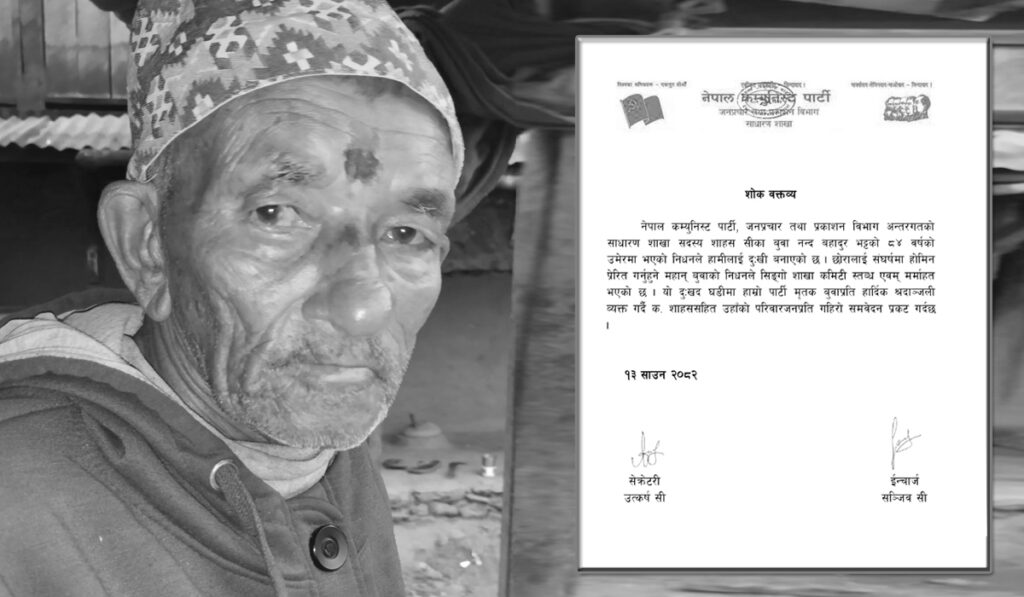 नेपाल कम्युनिस्ट पार्टी
जनप्रचार तथा प्रकाशन विभाग
साधारण शाखा
शोक वक्तव्य
नेपाल कम्युनिस्ट पार्टी, जनप्रचार तथा प्रकाशन विभाग अन्तरगतको
साधारण शाखा सदस्य शाहस सीका बुवा नन्द बहादुर भट्टको ८४ वर्षको
उमेरमा भएको निधनले हामीलाई दुःखी बनाएको छ । छोरालाई संघर्षमा होमिन
प्रेरित गर्नुहुने महान् बुवाको निधनले सिङ्गो शाखा कमिटी स्तब्ध एवम् मर्माहत
भएको छ । यो दुःखद घडीमा हाम्रो पार्टी मृतक बुवाप्रति हार्दिक श्रदाञ्जली
व्यक्त गर्दै क. शाहससहित उहाँको परिवारजनप्रति गहिरो समवेदन प्रकट गर्दछ
।
१३ साउन २०८२
सेक्रेटरी ईन्चार्ज
उत्कर्ष सी सञ्जिव सी